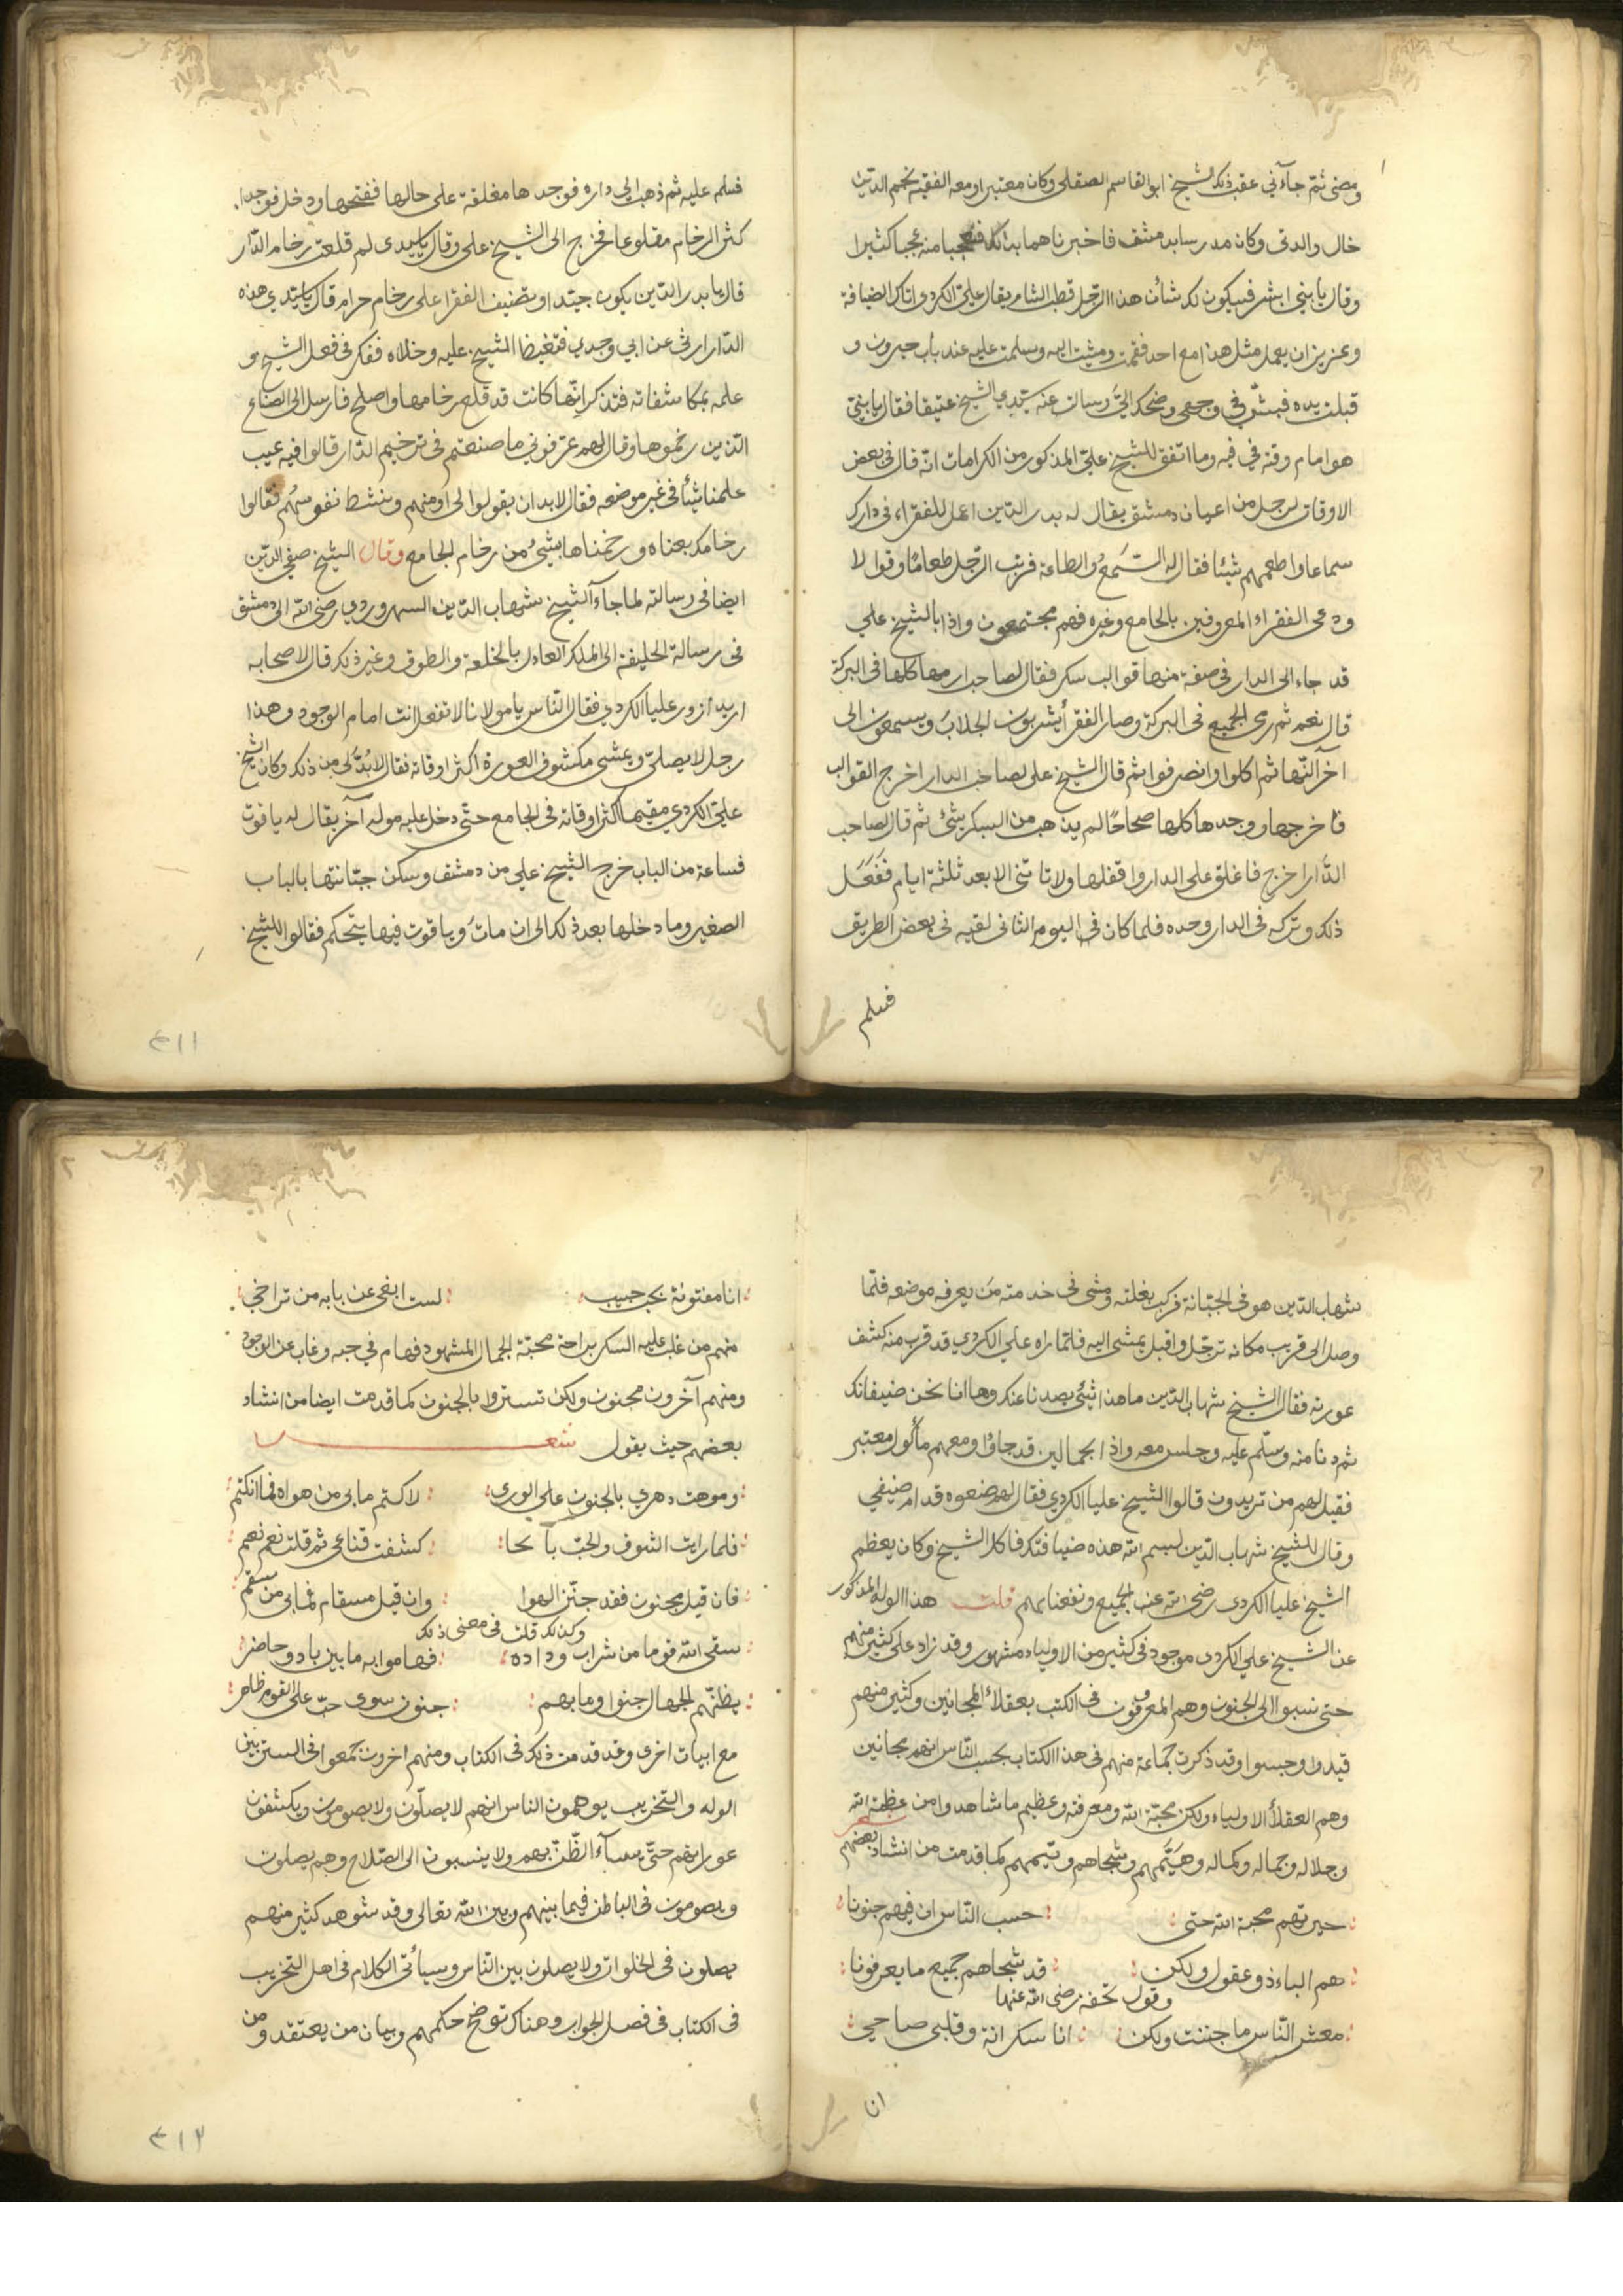 ومضى ثم جآءني عقب ذلك الشيخ ابوالقاسم الصقلى وكان معتبرا ومعه الفقيه نجم الدين
خال والدتى وكان مدرسا بدمشق فاخبرناهما بذلك فتعجبا منه عجبا كثيرا
وقال يا بني ابشر فسيكون لك شأن هذا الرجل قطب الشام يقال علي الكردي واتاك بالضيافة
وعزيز ان يعمل مثل هذا مع احد فقمت ومشيت اليه وسلمت عليه عند باب جيرون و
قبلت يده فبشّ في وجهى وضحك اليّ وسالت عنه سيدي الشيخ عتيقا فقال يا بنيّ
هو امام وقته في فنه وما اتفق للشيخ عليّ المذكور من الكرامات انه قال في بعض
الاوقات لرجل من اعيان دمشق يقال له بدر الدين اعمل للفقراء فى دارك
سماعا واطعمهم شيئا فقال له السّمعُ والطاعة فرتب الرّجل طعامًا وقوالا
ودعى الفقراء المعروفين بالجامع وغيره فهم مجتمعون واذا بالشيخ علي
قد جاء الى الدار فى صفة منها قوالب سكر فقال لصاحب ارمها كلها فى البركة
قال نعم ثم رمى الجميع فى البركة وصار الفقرأ يشربون الجلابَ ويسمعون الى
آخر النهار ثم اكلوا وانصرفوا ثم قال الشيخ على لصاحب الدار اخرج القوالب
فاخرجها ووجدها كلها صحاحًا لم يذهب من السكر شئ ثم قال لصاحب
الدّار اخرج فاغلق على الدار واقفلها ولا تاتنى الا بعد ثلثة ايام فَفَعَل
ذلك وتركه فى الدار وحده فلما كان فى اليوم الثانى لقيه فى بعض الطريق
فسلم
فسلم عليه ثم ذهب الى داره فوجدها مغلقة على حالها ففتحها ودخل فوجد
كثر الرخام مقلوعا فخرج الى الشيخ على وقال يا سيدى لم قلعت رخام الدّار
قال يا بدر الدّين يكون جيّدا وتضيف الفقرا على رخام حرام قال يا سيّدي هذه
الدّار ارثى عن ابي وجدي فتغيظ الشيخ عليه وخلاه ففكر فى فعل الشيخ و
علمه بمكاشفاته فتذكر انّها كانت قد قلع رخامها واصلح فارسل الى الصناع
الّذين رخموها وقال لهم عرّفوني ما صنعتم فى ترخيم الدّار قالوا فيه عيب
علمنا شيئأ فى غير موضعه فقال لا بد ان يقولوا لى اومنهم وبنشط نفوسهم فقالوا
رخامك بعناه ورخمناها بشئ من رخام الجامع وقال الشيخ صفي الدّين
ايضا فى رسالته لما جاء الشيخ شهاب الدّين السهروردي رضى الله الى دمشق
فى رسالة الخليفة الى الملك العادل بالخلعة والطوق وغير ذلك قال لاصحابه
اريد ازور عليا الكردي فقال النّاس يا مولانا لا تفعل انت امام الوجود وهذا
رجل لا يصلى ويمشي مكشوف العورة اكثر اوقاته فقال لا بُدّ لى من ذلك وكان الشيخ
عليّ الكردي مقيما اكثر اوقاته فى الجامع حتّى دخل عليه موله آخر يقال له ياقوت
فساعة من الباب خرج الشيخ علي من دمشق وسكن جبّانتها بالباب
الصغير وما دخلها بعد ذلك الى ان ماتَ وياقوت فيها يتّحكم فقالوا للشيخ
٣١١
شهاب الدّين هو فى الجبّانة فركب بغلته ومشى فى خدمته مَن يعرفه موضعه فلمّا
وصل الى قريب مكانه ترجّل واقبل يمشى اليه فلمّا راه علي الكردي قد قرب منه كشف
عورته فقال الشيخ شهاب الدّين ما هذا شئ يصدنا عنك وها انا نحن ضيفانك
ثم دنا منه وسلّم عليه وجلس معه واذا بحمالين قد جاؤا ومعهم مأكول معتبر
فقيل لهم من تريدون قالوا الشيخ عليا الكردي فقال لهم ضعوه قدام ضيفي
وقال للشيخ شهاب الدّين لبسم الله هذه ضيافتك فاكل الشيخ وكان يعظم
الشيخ عليا الكردى رضى الله عن الجميع ونفعنا بهم قلت هذا الوله المذكور
عن الشيخ علي الكردى موجود فى كثير من الاولياء مشهور وقد زاد على كثير منهم
حتى نسبوا الى الجنون وهم المعرفون فى الكتب بعقلاء المجانين وكثير منهم
قيدوا وحبسوا وقد ذكرت جماعة منهم فى هذا الكتاب يحسب النّاس انهم مجانين
وهم العقلأ الاولياء ولكن محبّة الله ومعرفته وعظيم ما شاهدوا من عظمة الله
وجلاله وجماله وكماله وهيّمهم وشجاهم وتيمهم كما قدمت من انشاد بعضهم شعر
حيرتهم محبة الله حتى حسب النّاس ان فيهم جنونا
هم الباء ذو عقول ولكن قد شجاهم جميع ما يعرفونا
وقول تحفه رضى الله عنها
معشر النّاس ما جننت ولكن انا سكرانة وقلبى صاحي
انا
انا مفتونة بحب حبيب لست ابغى عن بابه من تراخي
منهم من غلب عليه السكر براحة محبّة الجمال المشهود فهام في حبه وغاب عن الوجود
ومنهم آخرون مجنون ولكن تستروا بالجنون كما قدمت ايضا من انشاد
بعضهم حيث يقول شعر
وموهت دهري بالجنون على الورى لاكتم ما بى من هواه فما انكتم
فلما رايت الشوق والحبّ بآئحا كشفت قناعى ثم قلت نعم نعم
فان قيل مجنون فقد جنّنى الهوا وان قيل مسقام فما بى من سقم
وكذلك قلت فى معنى ذلك
سقى الله قوما من شراب وداده فهاموا به ما بين باد وحاضر
يظنّهم الجهال جنوا وما بهم جنون سوى حبّ على القوم ظاهر
مع ابيات اخرى وقد قدمت ذلك فى الكتاب ومنهم اخرون جمعوا فى الستر بين
الوله والتخريب يوهمون الناس انهم لا يصلّون ولا يصومون ويكشفون
عوراتهم حتّى يساء الظّنّ بهم ولا ينسبون الى الصّلاح وهم يصلون
ويصومون فى الباطن فيما بينهم وبين الله تعالى وقد شوهد كثير منهم
يصلون فى الخلوات ولا يصلون بين النّاس وسيأتى الكلام فى اهل التخريب
فى الكتاب فى فصل الجواب وهناك توضح حكمهم وبيان من يعتقد ومن
٣١٢